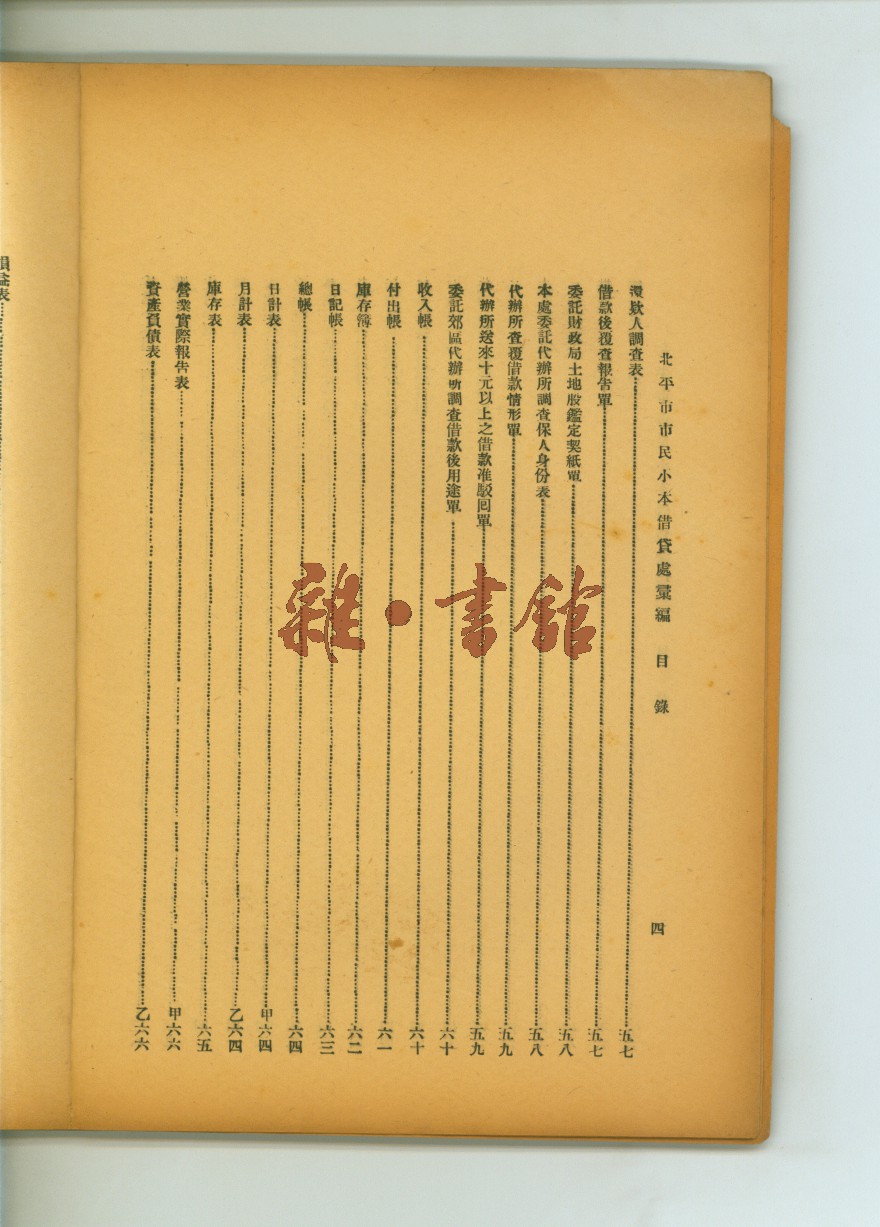 北平市市民小本借貸處彙編 目錄 四
還欵人調查表 五七
借款後覆查報告單 五七
委託財政局土地股鑑定契紙單 五八
本處委託代辦所調查保人身份表 五八
代辦所查覆借款情形單 五九
代辦所送來十元以上之借款准駁囘單 五九
委託郊區代辦所調查借款後用途單 六十
收入帳 六十
付出帳 六一
庫存簿 六二
日記帳 六三
總帳 六四
日計表 甲六四
月計表 乙六四
庫存表 六五
營業實際報告表 甲六六
資產負債表 乙六六
損益表
雜·書館